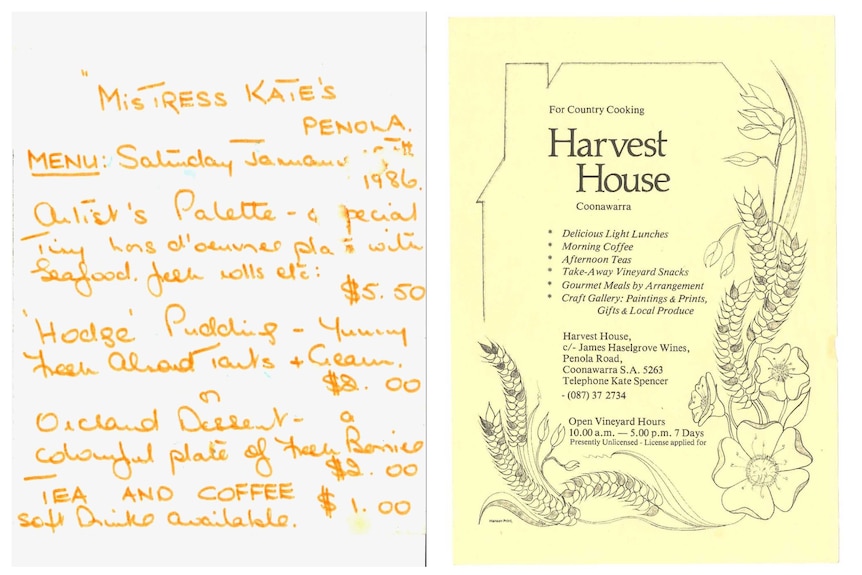 "MISTRESS KATE'S
PENOLA.
MENU: Saturday January
1986.
Artist's Palette - a special
Tiny hors d'oeuvres plate with
Seafood, fresh rolls etc:
$5.50
'Hodge' Pudding - Yummy
Fresh Almond Tarts + Cream.
$2.00
or
Orchard Dessert - a
colourful plate of Fresh Berries
$2.00
TEA AND COFFEE $1.00
soft Drinks available.
For Country Cooking
Harvest
House
Coonawarra
* Delicious Light Lunches
* Morning Coffee
* Afternoon Teas
* Take-Away Vineyard Snacks
* Gourmet Meals by Arrangement
* Craft Gallery: Paintings & Prints,
Gifts & Local Produce
Harvest House,
c/- James Haselgrove Wines,
Penola Road,
Coonawarra S.A. 5263
Telephone Kate Spencer
- (087) 37 2734
Open Vineyard Hours
10.00 a.m. — 5.00 p.m. 7 Days
Presently Unlicensed - License applied for